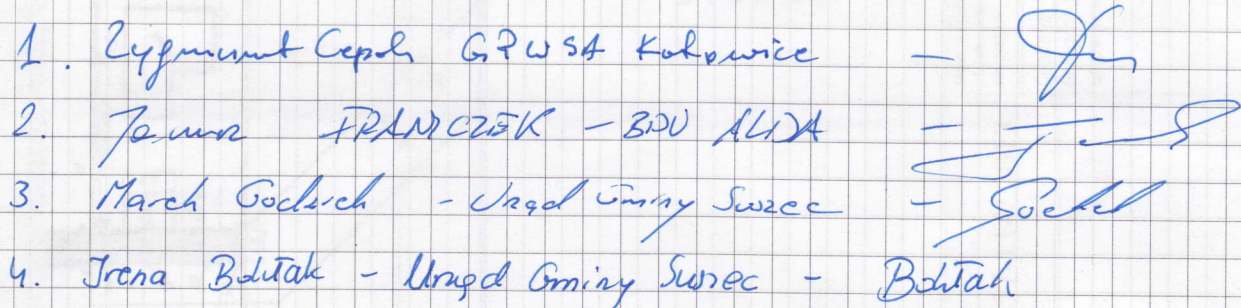 1. Zygmunt Cepok GPW SA Katowice –
2. Janusz FRANICZEK – BDU ALDA –
3. Marek – Urząd Gminy Suszec –
4. Irena Bołtak – Urząd Gminy Suszec – Bołtak